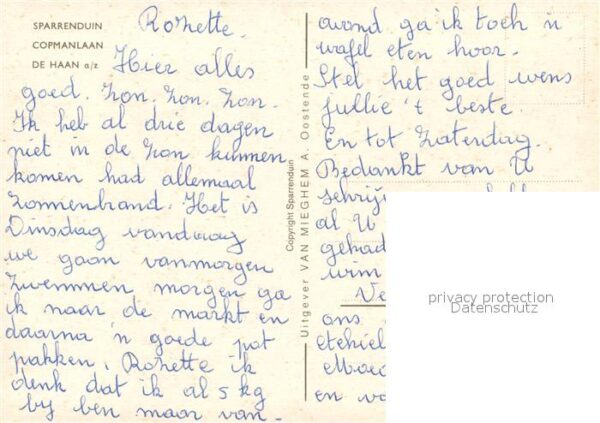 SPARRENDUIN
COPMANLAAN
DE HAAN a/z
Rozette.
Hier alles
goed. Zon. Zon. Zon.
Ik heb al drie dagen
niet in de zon kunnen
komen had allemaal
zonnenbrand. Het is
Dinsdag vandaag
we gaan vanmorgen
zwemmen morgen ga
ik naar de markt en
daarna 'n goede pot
pakken. Rozette ik
denk dat ik al 5 kg
by ben maar van-
Copyright Sparrenduin
Uitgever VAN MIEGHEM A. Oostende
avond ga ik toch 'n
wafel eten hoor.
Stel het goed wens
jullie 't beste.
En tot Zaterdag.
Bedankt van U
schrij
al U
gehad
wim
Ve
ons
en vo
privacy protection
Datenschutz